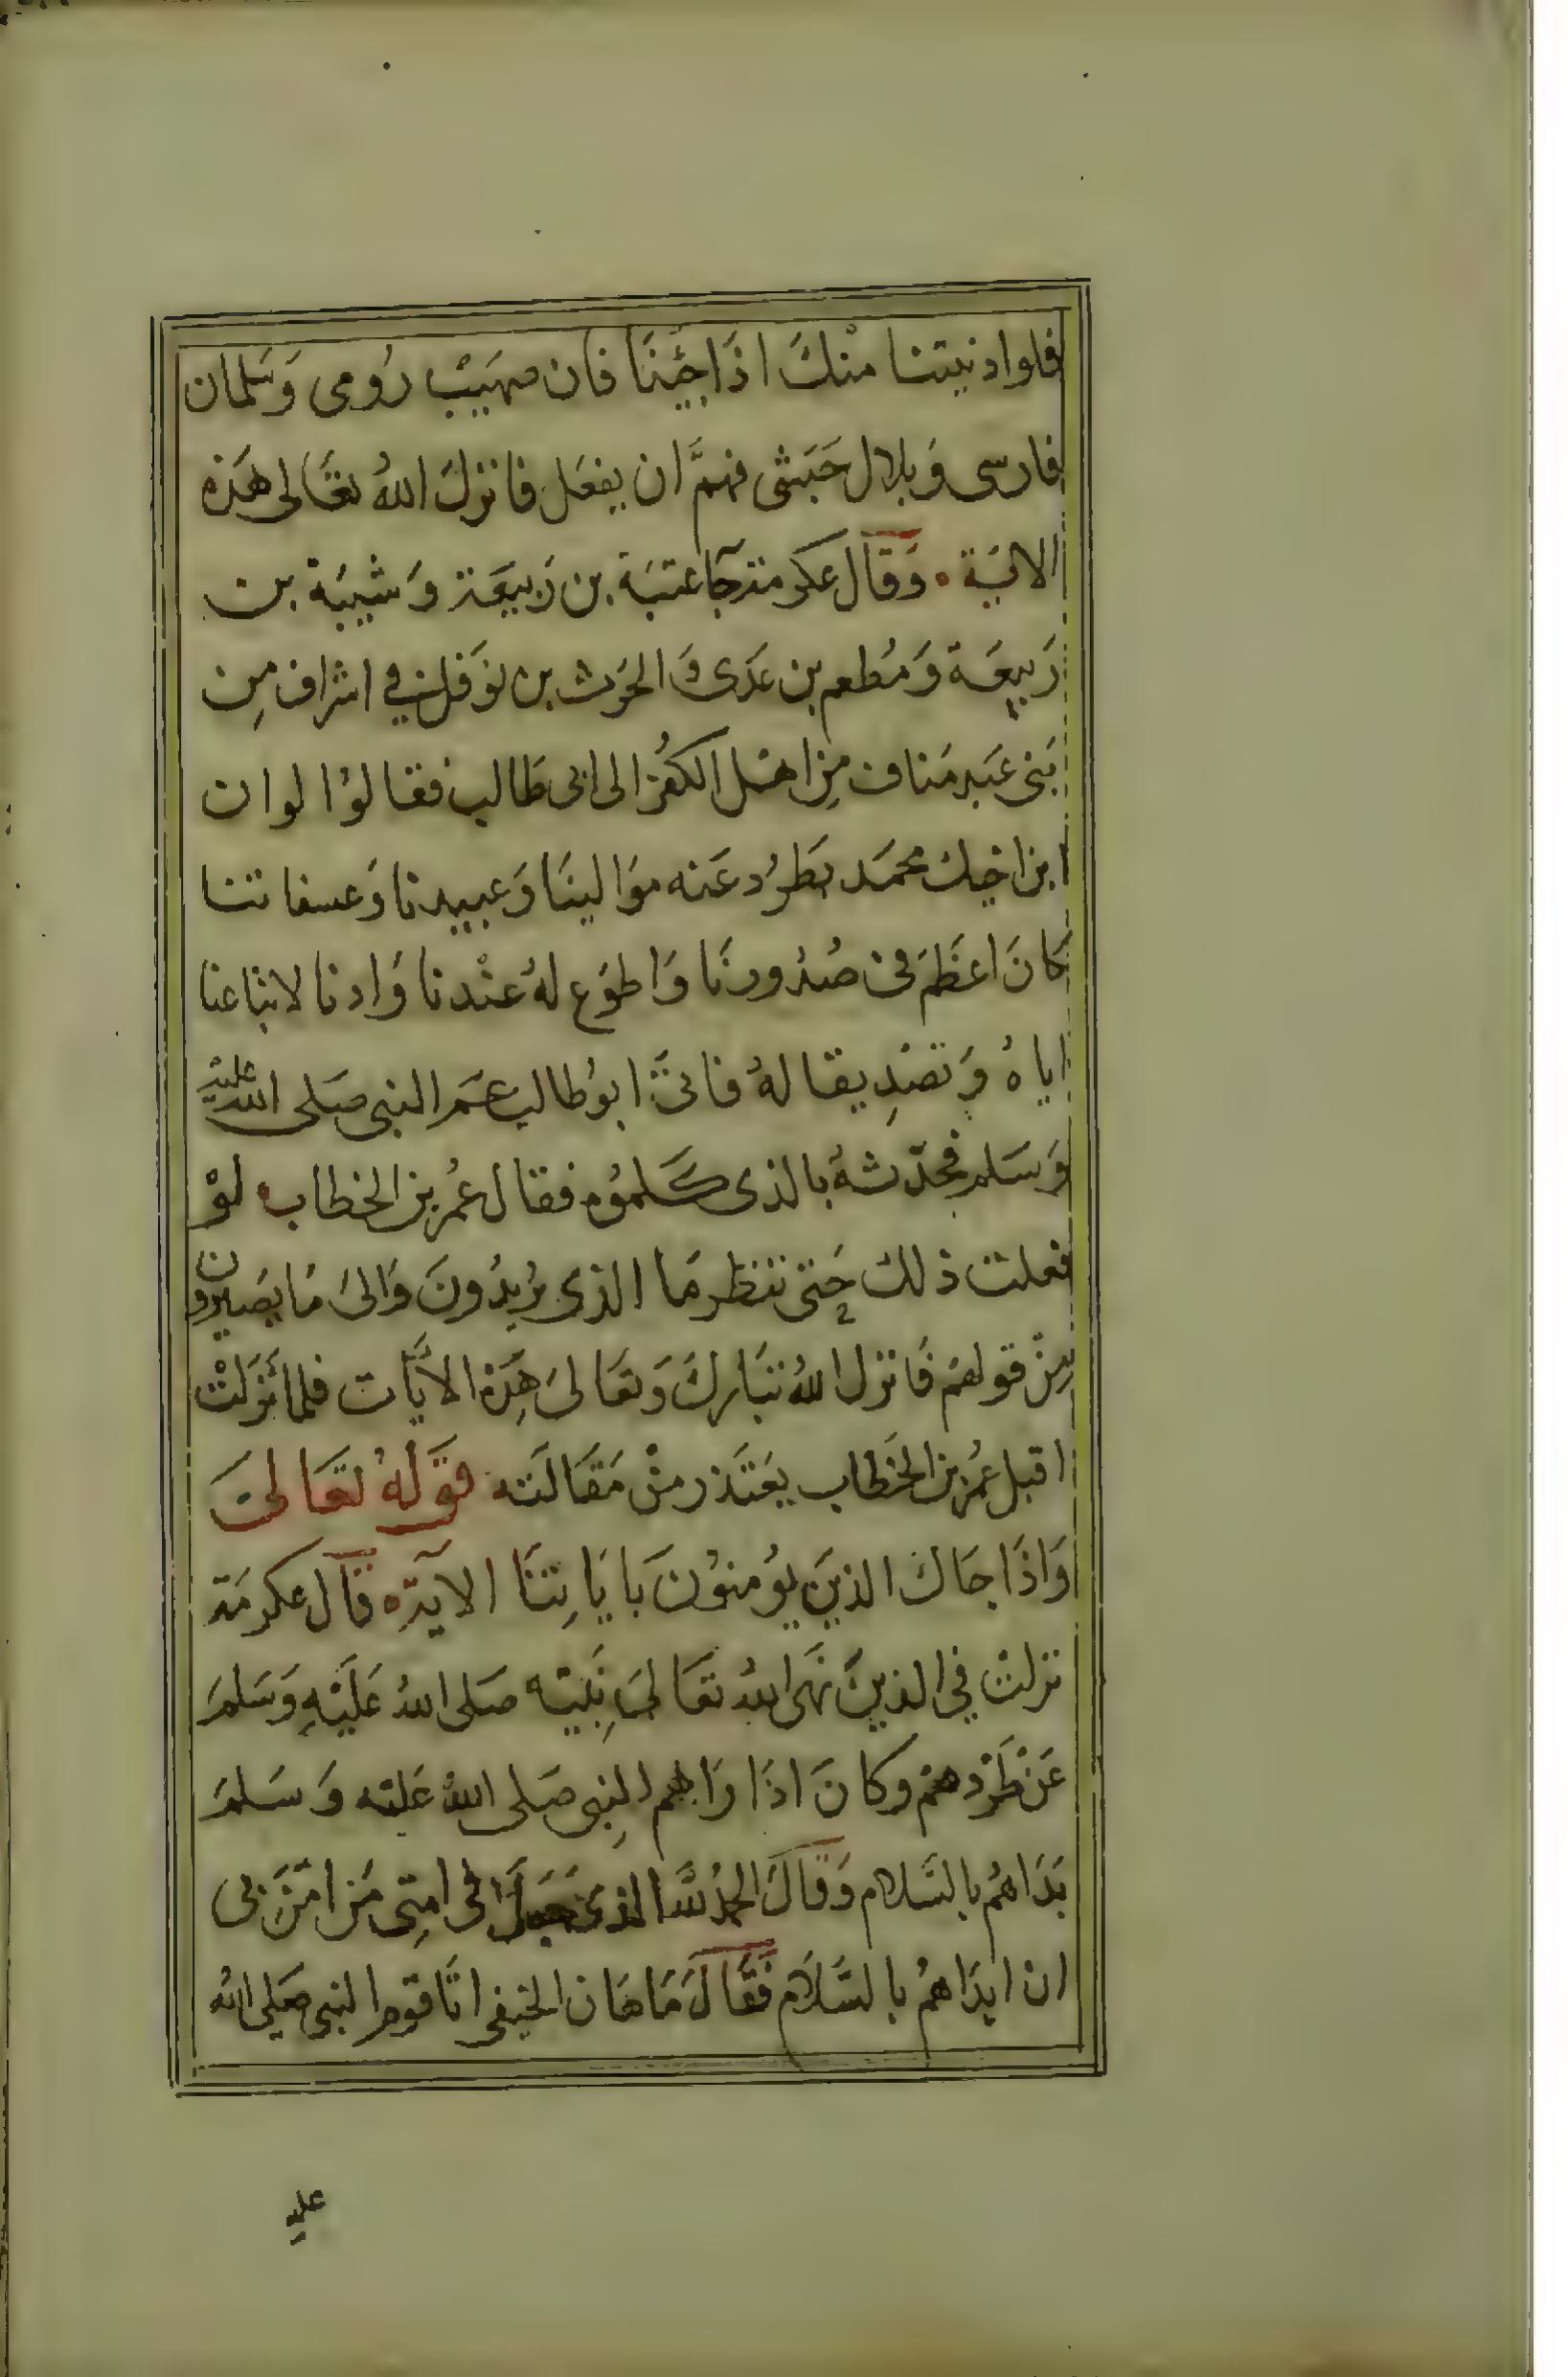 فلوا دنيتنا منكَ اذَا جئنَا فان صهيبْ رُومى وَسَلمان
فارسى وَبلال حَبَشى فهمَّ ان يفعَل فانزلَ اللهُ تعَالى هَذه
الايَة ۰ وَقَالَ عكرمة جآ عتبَة بن رَبيعَة وَشيبَة بن
رَبيعَة وَمُطعم بن عَدىّ وَالحَرث بن نوَفل في اشراف مِن
بَنى عَبد مَناف مِن اهَل الكفُر الى ابى طَالب فقالوُا لو ان
ابن اخيك محمَد يَطرُد عَنه موَالينَا وَعبيدنا وَعسفاتنا
كانَ اعَظمَ فى صُدُورنَا وَاطوَع لهُ عنْدنا وَادنا لاتباعنا
اياهُ وَتصَدِيقا لهُ فاتىَ ابوُ طالب عَمَ النبى صَلى الله عليه
وَسَلم فحدّثهُ بالذى كَلموُه فقال عُمر بن الخطاب لوْ
فعلت ذلك حَتى ننظر مَا الذى يُريدُونَ وَالىَ مَا يصَيرون
مِنْ قولهمْ فَانزل اللهُ تبَاركَ وَتعَالىَ هَذِه الآيَات فلما نزَلتْ
اقبل عُمر بن الخَطاب يعَتَذر منْ مَقَالَته قوَلهُ تعَالىَ
وَاذَا جَاكَ الذينَ يوُمنوُنَ بايَاتِنَا الآية قالَ عكرمَة
نزلتْ في الذينَ نهَى اللهُ تعَالىَ نبَيّه صَلى اللهُ عَليْهِ وَسَلمَ
عَنْ طَرْدهمْ وكانَ اذَا رَاهم النبى صَلى اللهُ عَليْه وَسَلمَ
بَدَاهُم بالسَّلام وَقَالَ الحمدُ للهِ الذى جَعَلَ فى امتِى مَن امَرَنى
ان ابدَاهمُ بالسَّلَام فَقَالَ مَاهَان الحنيفى اتَا قوم النبى صَلى اللهُ
عليه